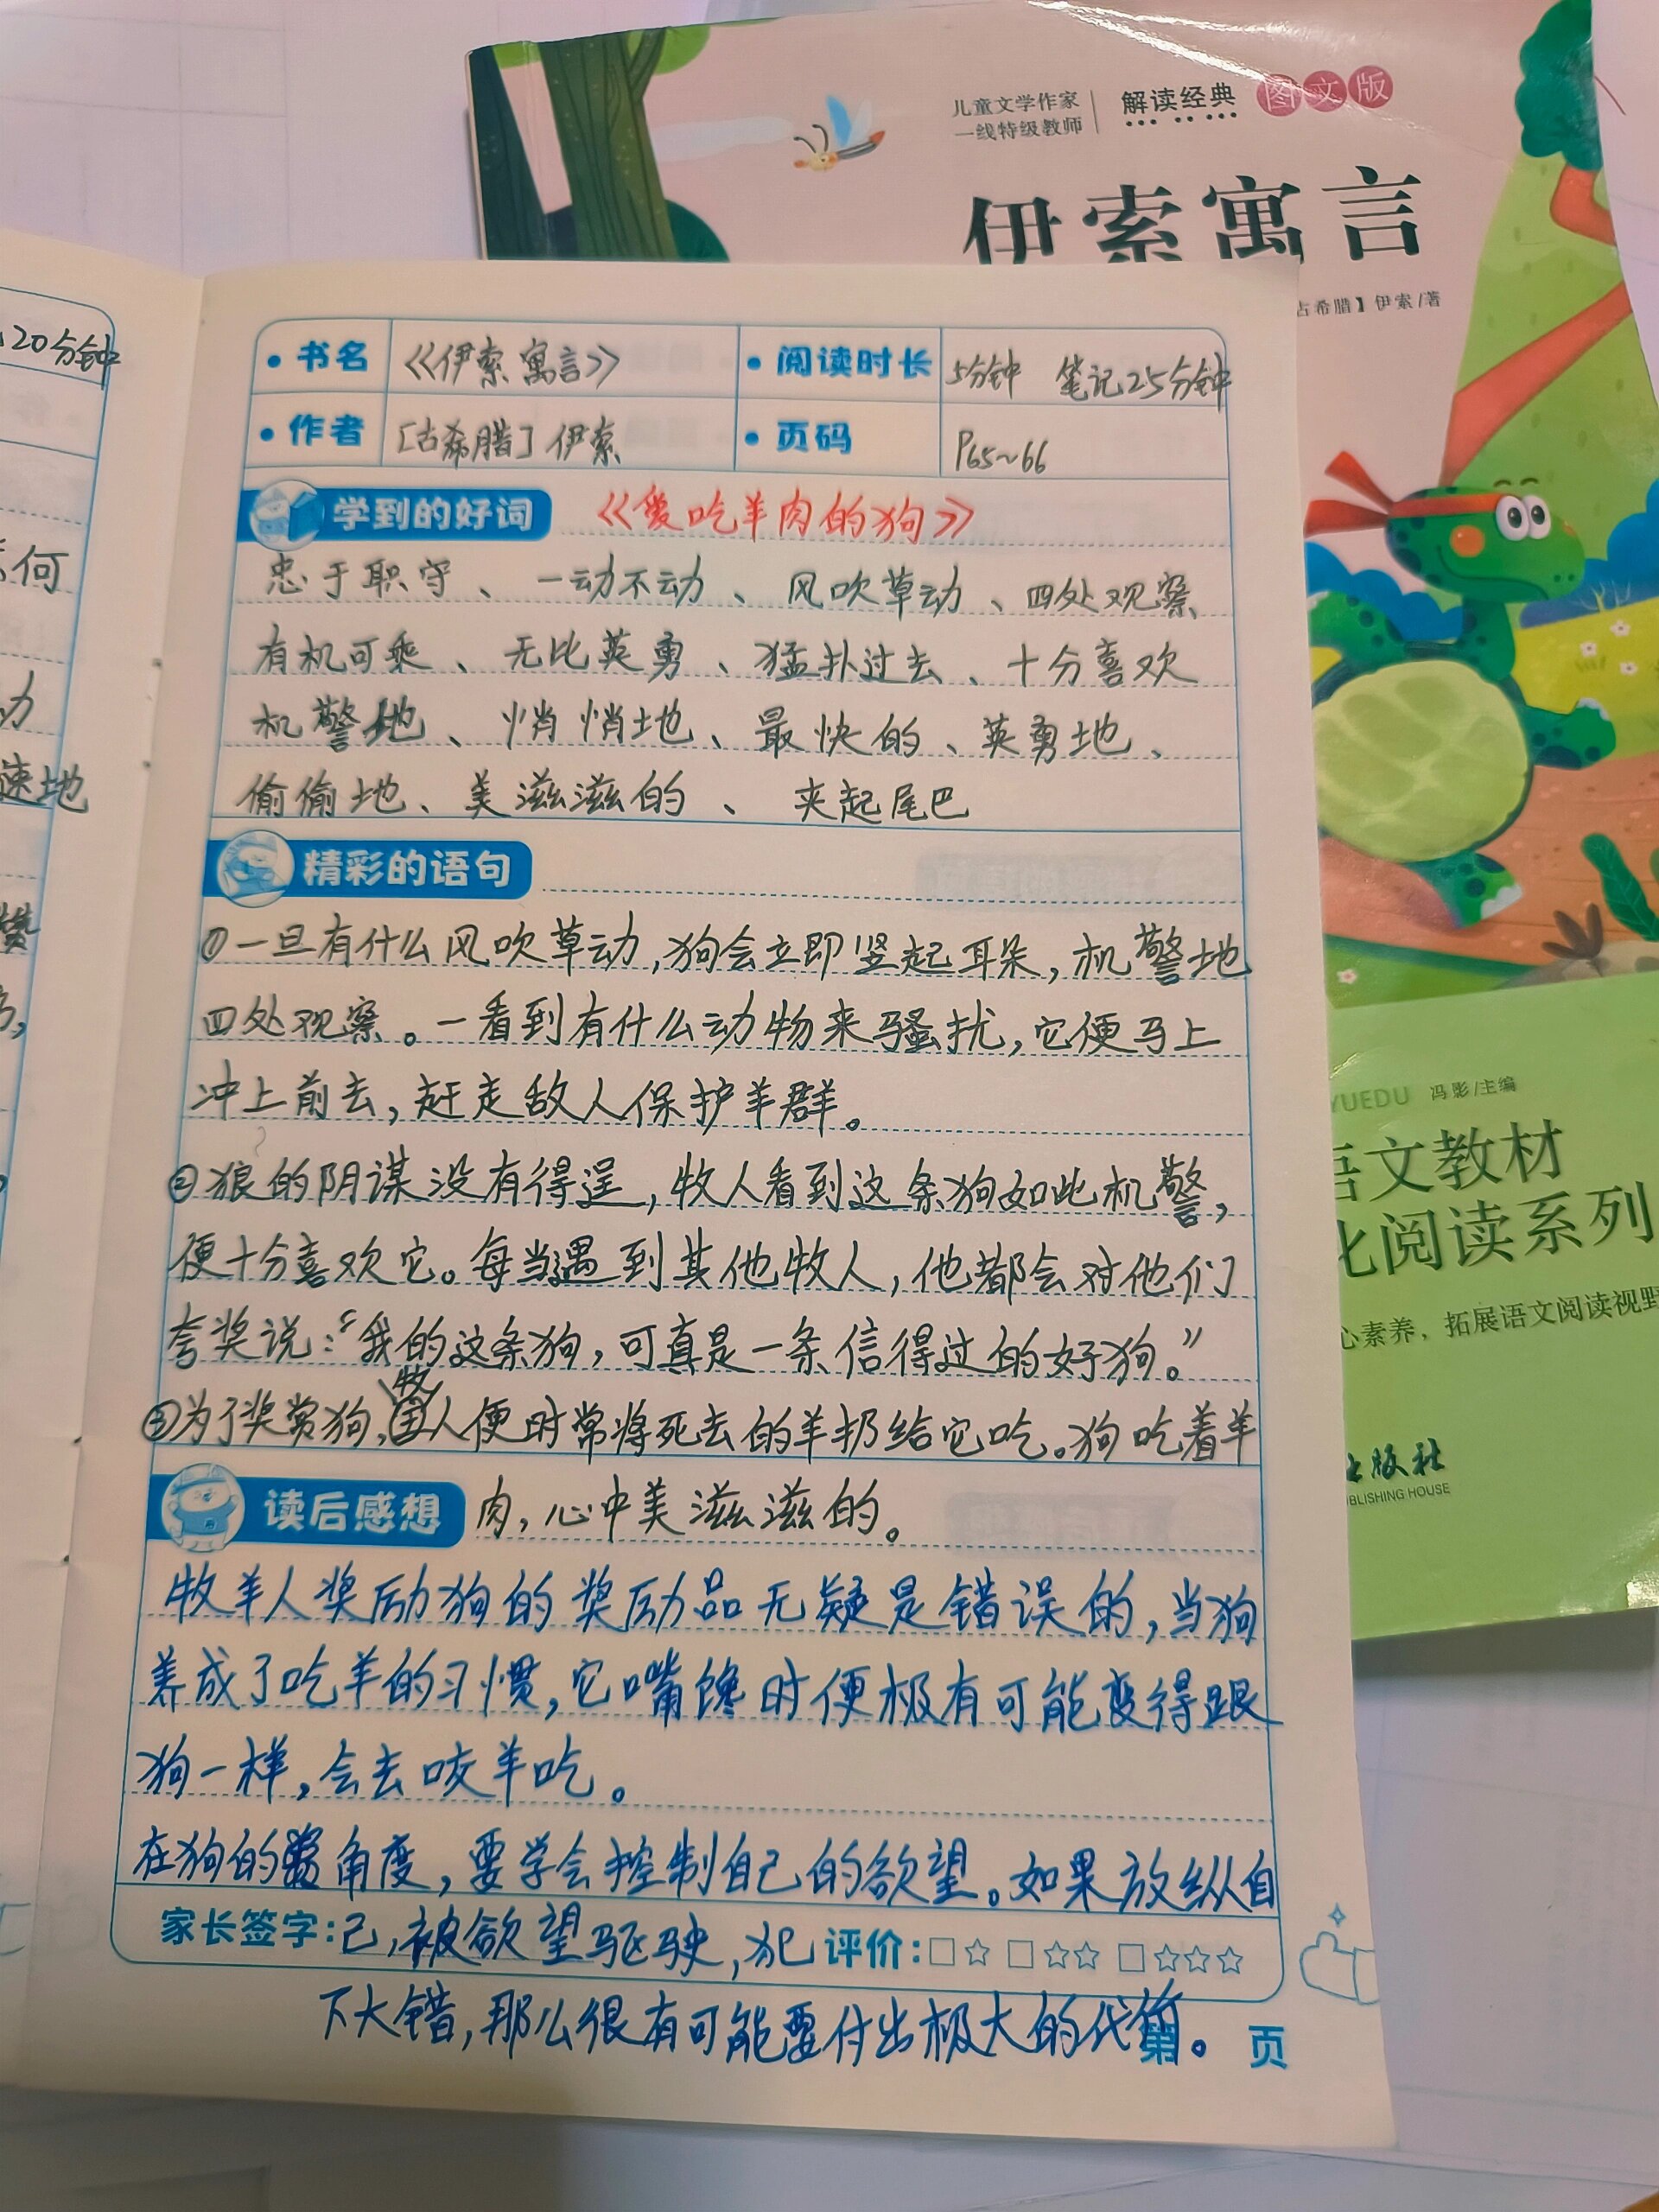 儿童文学作家
一线特级教师
解读经典
图文版
伊索寓言
古希腊】伊索/著
20分钟
书名 《伊索寓言》 阅读时长 5分钟 笔记25分钟
作者 [古希腊]伊索 页码 P65~66
学到的好词 《爱吃羊肉的狗》
忠于职守、一动不动、风吹草动、四处观察
有机可乘、无比英勇、猛扑过去、十分喜欢
机警地、悄悄地、最快的、英勇地、
偷偷地、美滋滋的、夹起尾巴
精彩的语句
①一旦有什么风吹草动,狗会立即竖起耳朵,机警地
四处观察。一看到有什么动物来骚扰,它便马上
冲上前去,赶走敌人保护羊群。
②狼的阴谋没有得逞,牧人看到这条狗如此机警,
便十分喜欢它。每当遇到其他牧人,他都会对他们
夸奖说:“我的这条狗,可真是一条信得过的好狗。”
③为了奖赏狗,牧人便时常将死去的羊扔给它吃。狗吃着羊
读后感想 肉,心中美滋滋的。
牧羊人奖励狗的奖励品无疑是错误的,当狗
养成了吃羊的习惯,它嘴馋时便极有可能变得跟
狗一样,会去咬羊吃。
在狗的角度,要学会控制自己的欲望。如果放纵自
家长签字:己,被欲望驱驶,犯 评价:
下大错,那么很有可能要付出极大的代价。
第 页
何
力
速地
YUEDU 冯影/主编
语文教材
化阅读系列
心素养,拓展语文阅读视野
出版社
BLISHING HOUSE